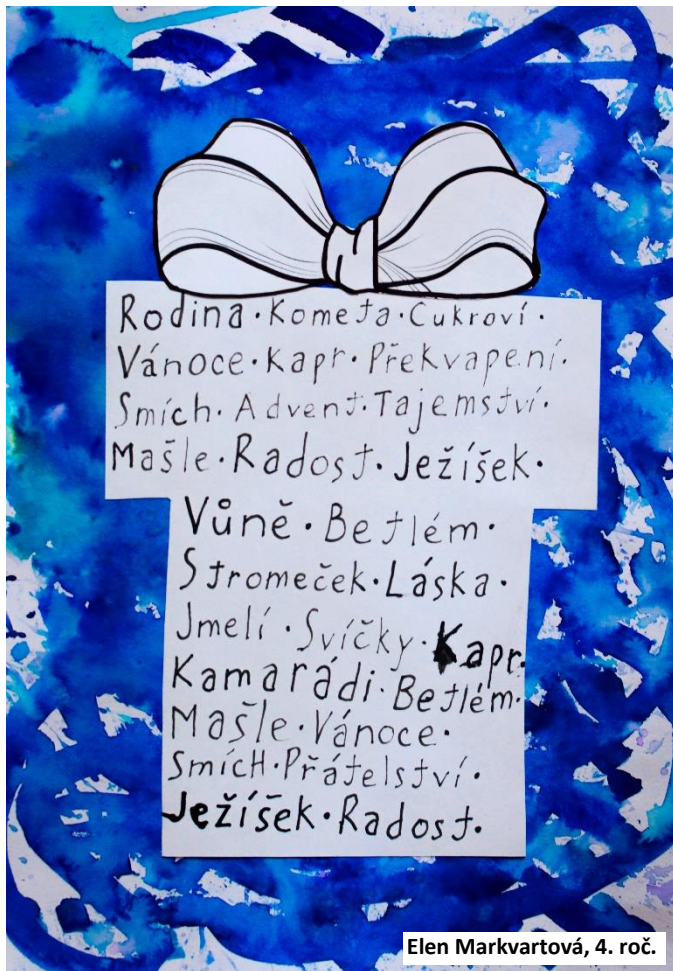 Rodina · Kometa · Cukroví ·
Vánoce · Kapr · Překvapení ·
Smích · Advent · Tajemství ·
Mašle · Radost · Ježíšek ·
Vůně · Betlém ·
Stromeček · Láska ·
Jmelí · Svíčky · Kapr ·
Kamarádi · Betlém ·
Mašle · Vánoce ·
SmícH · Přátelství ·
Ježíšek · Radost ·
Elen Markvartová, 4. roč.